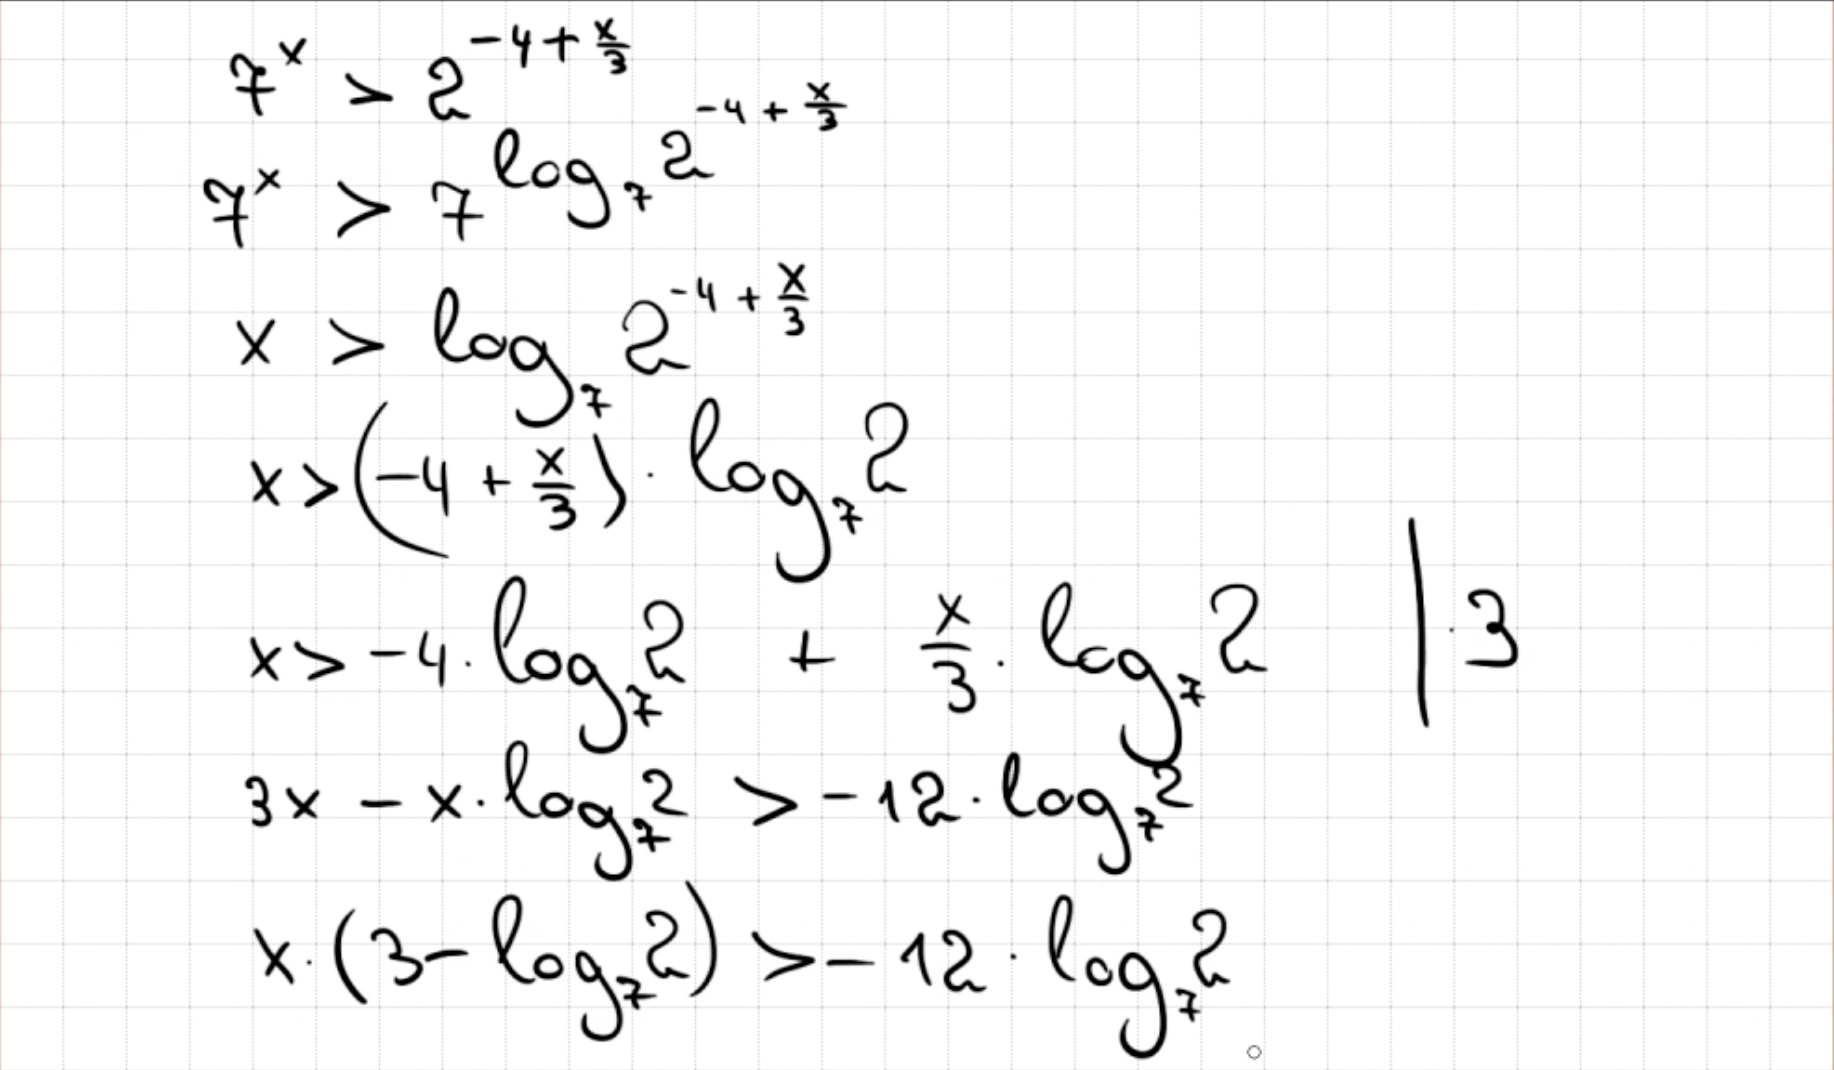 7^x > 2^(-4 + x/3)
7^x > 7^(log_7 2^(-4 + x/3))
x > log_7 2^(-4 + x/3)
x > (-4 + x/3) · log_7 2
x > -4 · log_7 2 + x/3 · log_7 2 | · 3
3x - x · log_7 2 > -12 · log_7 2
x · (3 - log_7 2) > -12 · log_7 2